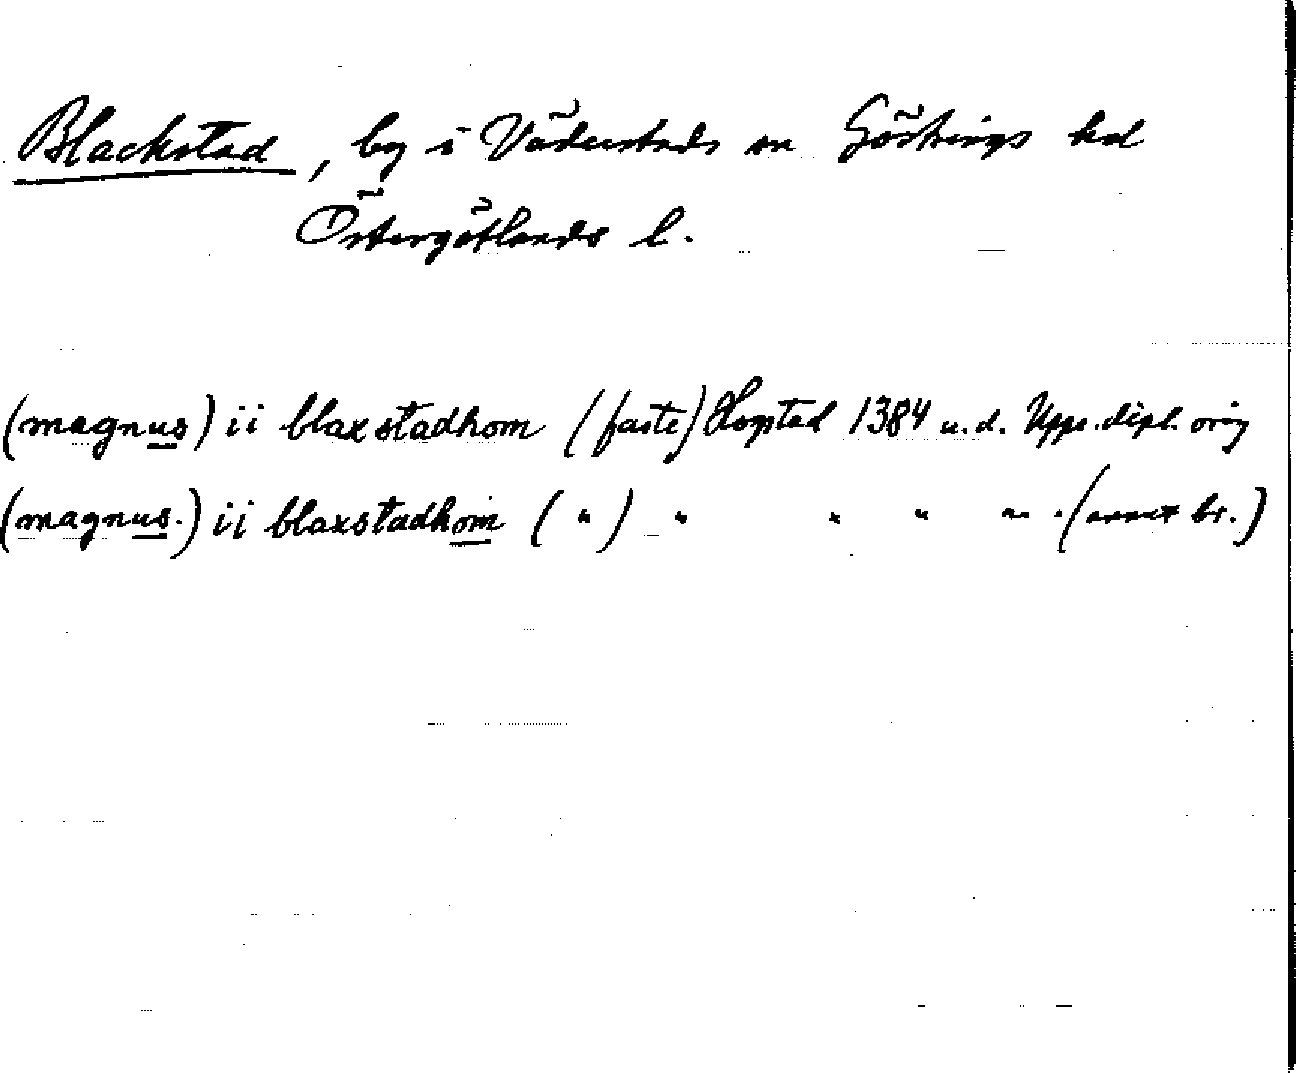 Blackstad, by i Väderstads sn Göstrings hd
Östergötlands l.
(magnus) ii blaxstadhom (faste) Hogstad 1384 u.d. Upps. dipl. orig
(magnus.) ii blaxstadhom ( " ) " " " " " . (annat br.)